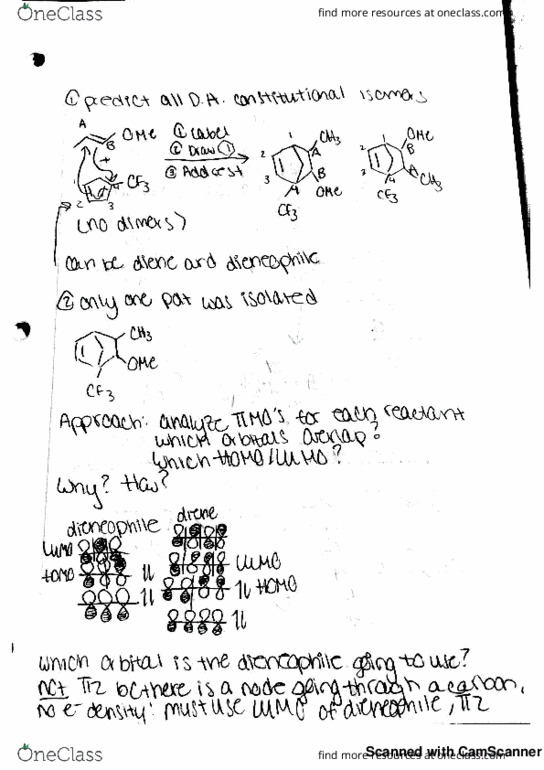 OneClass
find more resources at oneclass.com
① predict all D.A. constitutional isomers
A
OMe
B
CF3
2 3
① Label
② Draw ①
③ Add rest
1
2
3
CH3
A
B
OMe
4
CF3
1
2
3
OMe
B
A
CH3
4
CF3
(no dimers)
can be diene and dieneophile
② only one pdt was isolated
CH3
OMe
CF3
Approach: analyze πMO's for each reactant
which orbitals overlap?
which HOMO/LUMO?
Why? How?
dieneophile diene
LUMO
HOMO
1L
1L
LUMO
1L HOMO
1L
which orbital is the dieneophile going to use?
not π2 bc there is a node going through a carbon,
no e- density: must use LUMO of dieneophile, π2
OneClass
find more resources at oneclass.com
Scanned with CamScanner